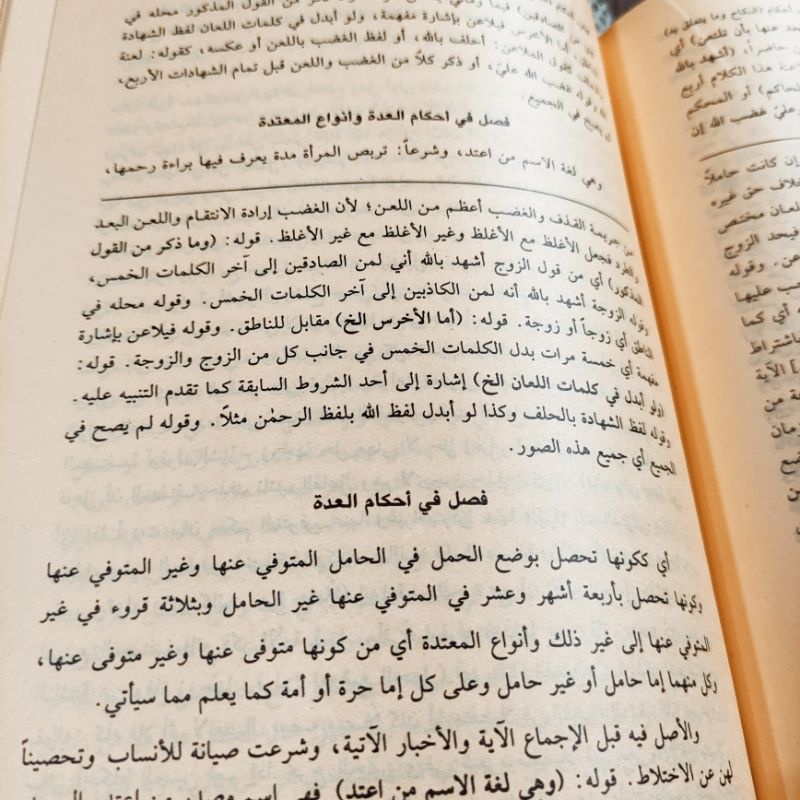 من الصادقين) فيما وماني
القول المذكور محله في
أما الأخرس فيلاعن بإشارة مفهمة، ولو أبدل في كلمات اللعان لفظ الشهادة
كقول الملاعن: أحلف بالله، أو لفظ الغضب باللعن أو عكسه، كقوله: لعنة
قوله غضب الله عليّ، أو ذكر كلاً من الغضب واللعن قبل تمام الشهادات الأربع،
لم يصح في الجميع.
فصل في أحكام العدة وأنواع المعتدة
وهي لغة الاسم من اعتد، وشرعاً: تربص المرأة مدة يعرف فيها براءة رحمها،
من جريمة القذف والغضب أعظم من اللعن؛ لأن الغضب إرادة الانتقام واللعن البعد
والطرد فجعل الأغلظ مع الأغلظ وغير الأغلظ مع غير الأغلظ. قوله: (وما ذكر من القول
المذكور) أي من قول الزوج أشهد بالله أني لمن الصادقين إلى آخر الكلمات الخمس،
وقوله الزوجة أشهد بالله أنه لمن الكاذبين إلى آخر الكلمات الخمس. وقوله محله في
الناطق أي زوجاً أو زوجة. قوله: (أما الأخرس الخ) مقابل للناطق. وقوله فيلاعن بإشارة
مفهمة أي خمسة مرات بدل الكلمات الخمس في جانب كل من الزوج والزوجة. قوله:
(ولو أبدل في كلمات اللعان الخ) إشارة إلى أحد الشروط السابقة كما تقدم التنبيه عليه.
وقوله لفظ الشهادة بالحلف وكذا لو أبدل لفظ الله بلفظ الرحمٰن مثلاً. وقوله لم يصح في
الجميع أي جميع هذه الصور.
فصل في أحكام العدة
أي ككونها تحصل بوضع الحمل في الحامل المتوفي عنها وغير المتوفي عنها
وكونها تحصل بأربعة أشهر وعشر في المتوفي عنها غير الحامل وبثلاثة قروء في غير
المتوفي عنها إلى غير ذلك وأنواع المعتدة أي من كونها متوفى عنها وغير متوفى عنها،
وكل منهما إما حامل أو غير حامل وعلى كل إما حرة أو أمة كما يعلم مما سيأتي.
والأصل فيه قبل الإجماع الآية والأخبار الآتية، وشرعت صيانة للأنساب وتحصيناً
لهن عن الاختلاط. قوله: (وهي لغة الاسم من اعتد) فهي اسم مصدر من اعتد
أحكام النكاح وما يتعلق به)
عنها بأن تلتعن) أي
حاضراً، (أشهد بالله
هذا الكلام أربع
الحاكم) أو المحكم
وعليّ غضب الله إن
إن كانت حاملاً
خلاف حق غيره
لعان مختص
فيحد الزوج
عن. وقوله
عليها
أي كما
باشتراط
الآية
من